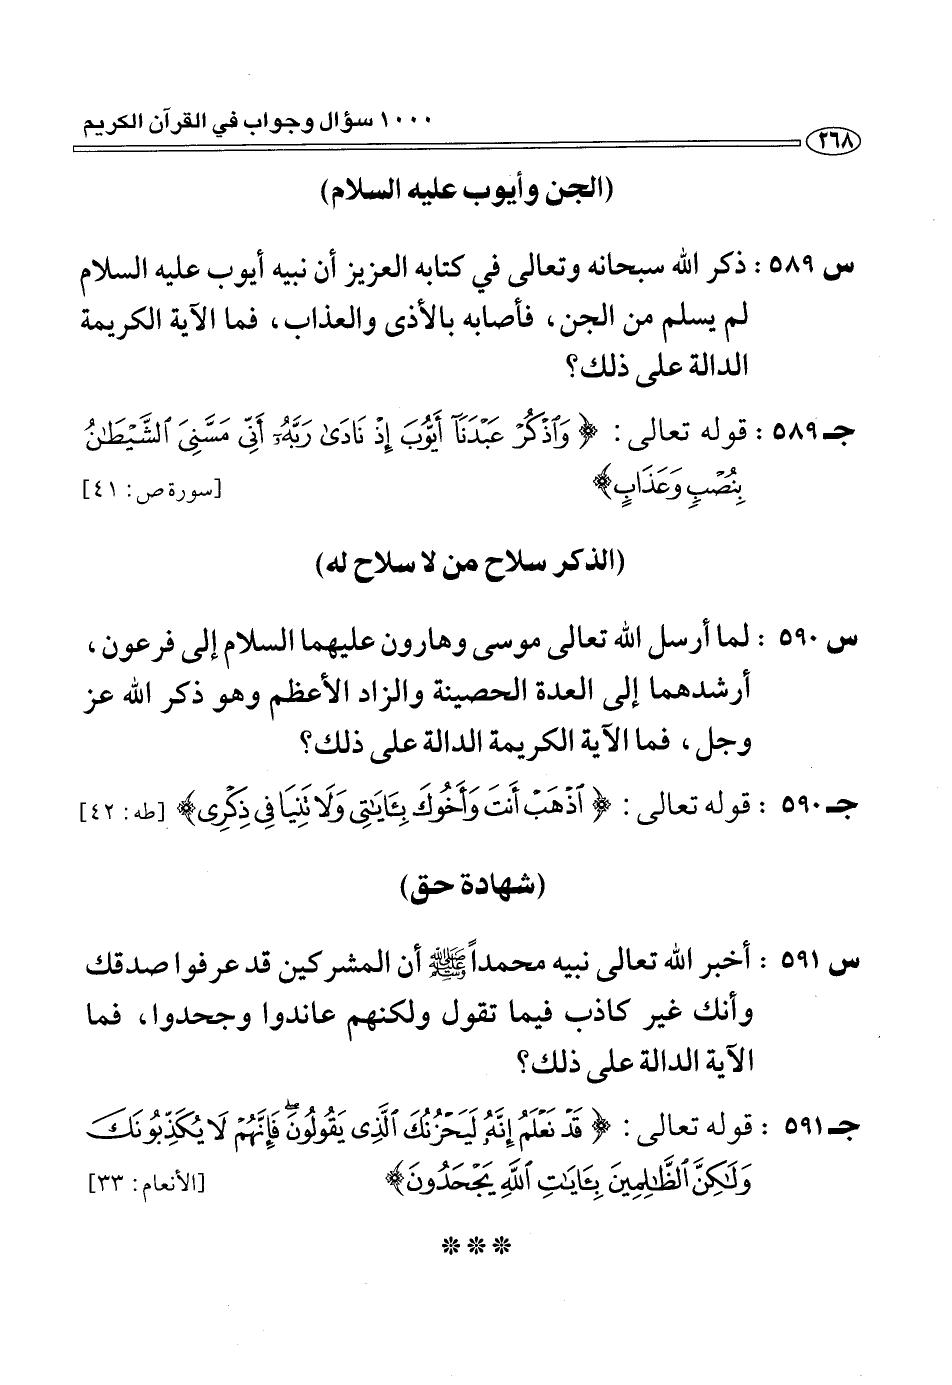 ١٠٠٠ سؤال وجواب في القرآن الكريم
٢٦٨
(الجن وأيوب عليه السلام)
س ٥٨٩ : ذكر الله سبحانه وتعالى في كتابه العزيز أن نبيه أيوب عليه السلام
لم يسلم من الجن، فأصابه بالأذى والعذاب، فما الآية الكريمة
الدالة على ذلك؟
جـ ٥٨٩ : قوله تعالى: ﴿ وَٱذْكُرْ عَبْدَنَآ أَيُّوبَ إِذْ نَادَىٰ رَبَّهُۥٓ أَنِّى مَسَّنِىَ ٱلشَّيْطَٰنُ
بِنُصْبٍ وَعَذَابٍ﴾ [سورة ص: ٤١]
(الذكر سلاح من لا سلاح له)
س ٥٩٠ : لما أرسل الله تعالى موسى وهارون عليهما السلام إلى فرعون،
أرشدهما إلى العدة الحصينة والزاد الأعظم وهو ذكر الله عز
وجل، فما الآية الكريمة الدالة على ذلك؟
جـ ٥٩٠ : قوله تعالى: ﴿ ٱذْهَبْ أَنتَ وَأَخُوكَ بِـَٔايَٰتِى وَلَا تَنِيَا فِى ذِكْرِى﴾ [طه: ٤٢]
(شهادة حق)
س ٥٩١ : أخبر الله تعالى نبيه محمداً ﷺ أن المشركين قد عرفوا صدقك
وأنك غير كاذب فيما تقول ولكنهم عاندوا وجحدوا، فما
الآية الدالة على ذلك؟
جـ ٥٩١ : قوله تعالى: ﴿ قَدْ نَعْلَمُ إِنَّهُۥ لَيَحْزُنُكَ ٱلَّذِى يَقُولُونَ ۖ فَإِنَّهُمْ لَا يُكَذِّبُونَكَ
وَلَٰكِنَّ ٱلظَّٰلِمِينَ بِـَٔايَٰتِ ٱللَّهِ يَجْحَدُونَ﴾ [الأنعام: ٣٣]
***